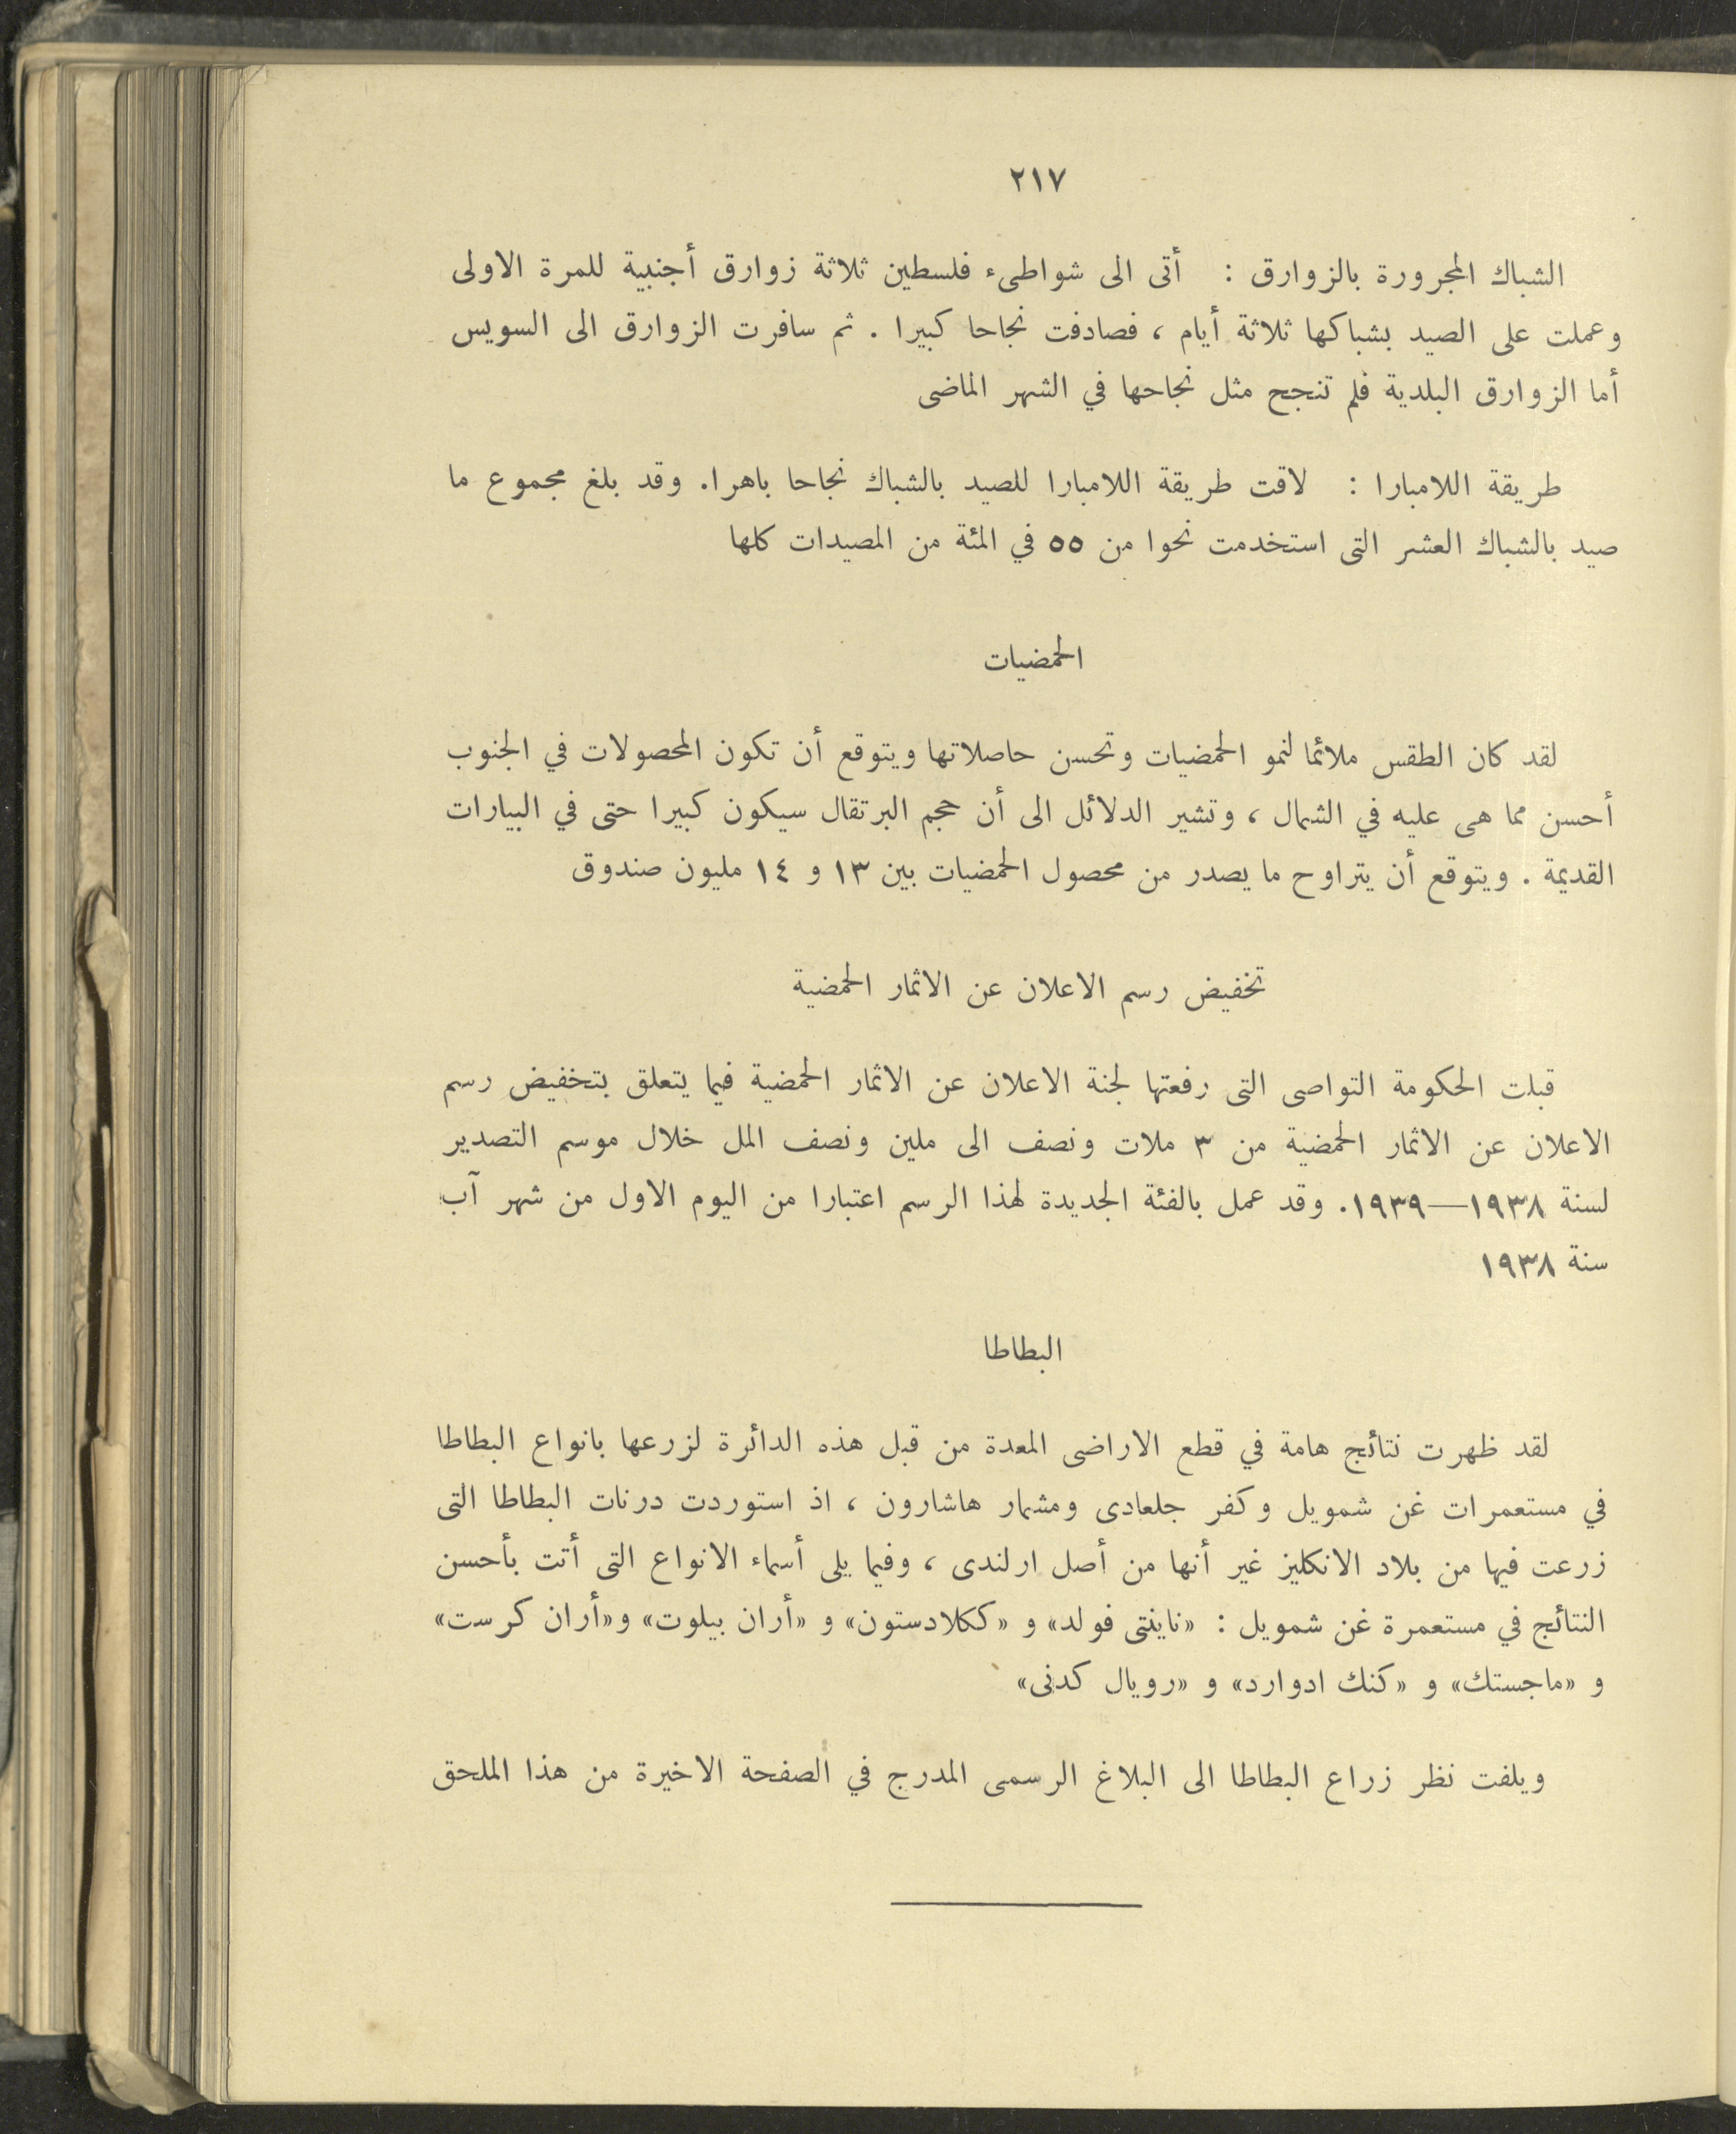 ٢١٧
الشباك المجرورة بالزوارق : أتى الى شواطىء فلسطين ثلاثة زوارق أجنبية للمرة الاولى
وعملت على الصيد بشباكها ثلاثة أيام ، فصادفت نجاحا كبيرا . ثم سافرت الزوارق الى السويس
أما الزوارق البلدية فلم تنجح مثل نجاحها في الشهر الماضى
طريقة اللامبارا : لاقت طريقة اللامبارا للصيد بالشباك نجاحا باهرا. وقد بلغ مجموع ما
صيد بالشباك العشر التى استخدمت نحوا من ٥٥ في المئة من المصيدات كلها
الحمضيات
لقد كان الطقس ملائما لنمو الحمضيات وتحسن حاصلاتها ويتوقع أن تكون المحصولات في الجنوب
أحسن مما هى عليه في الشمال ، وتشير الدلائل الى أن حجم البرتقال سيكون كبيرا حتى في البيارات
القديمة . ويتوقع أن يتراوح ما يصدر من محصول الحمضيات بين ١٣ و ١٤ مليون صندوق
تخفيض رسم الاعلان عن الاثمار الحمضية
قبلت الحكومة التواصى التى رفعتها لجنة الاعلان عن الاثمار الحمضية فيما يتعلق بتخفيض رسم
الاعلان عن الاثمار الحمضية من ٣ ملات ونصف الى ملين ونصف المل خلال موسم التصدير
لسنة ١٩٣٨—١٩٣٩. وقد عمل بالفئة الجديدة لهذا الرسم اعتبارا من اليوم الاول من شهر آب
سنة ١٩٣٨
البطاطا
لقد ظهرت نتائج هامة في قطع الاراضى المعدة من قبل هذه الدائرة لزرعها بانواع البطاطا
في مستعمرات غن شمويل وكفر جلعادى ومشمار هاشارون ، اذ استوردت درنات البطاطا التى
زرعت فيها من بلاد الانكليز غير أنها من أصل ارلندى ، وفيما يلى أسماء الانواع التى أتت بأحسن
النتائج في مستعمرة غن شمويل : «ناينتى فولد» و «ككلادستون» و «أران بيلوت» و«أران كرست»
و «ماجستك» و «كنك ادوارد» و «رويال كدنى»
ويلفت نظر زراع البطاطا الى البلاغ الرسمى المدرج في الصفحة الاخيرة من هذا الملحق